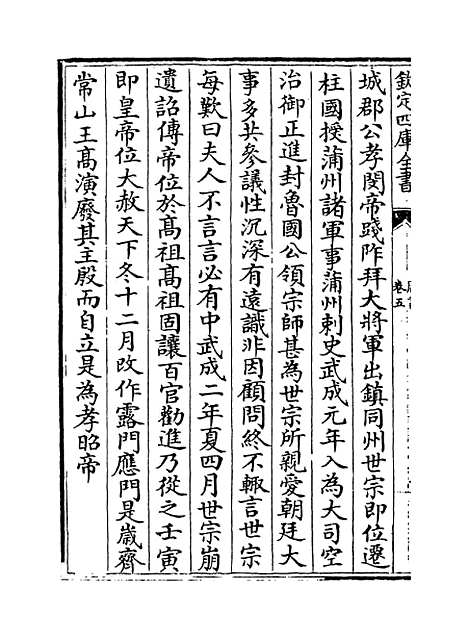 欽定四庫全書
卷五
城郡公孝閔帝踐阼拜大將軍出鎮同州世宗即位遷
柱國授蒲州諸軍事蒲州刺史武成元年入為大司空
治御正進封魯國公領宗師甚為世宗所親愛朝廷大
事多共參議性沉深有遠識非因顧問終不輒言世宗
每歎曰夫人不言言必有中武成二年夏四月世宗崩
遺詔傳帝位於髙祖髙祖固讓百官勸進乃從之壬寅
即皇帝位大赦天下冬十二月改作露門應門是歲齊
常山王髙演廢其主殷而自立是為孝昭帝